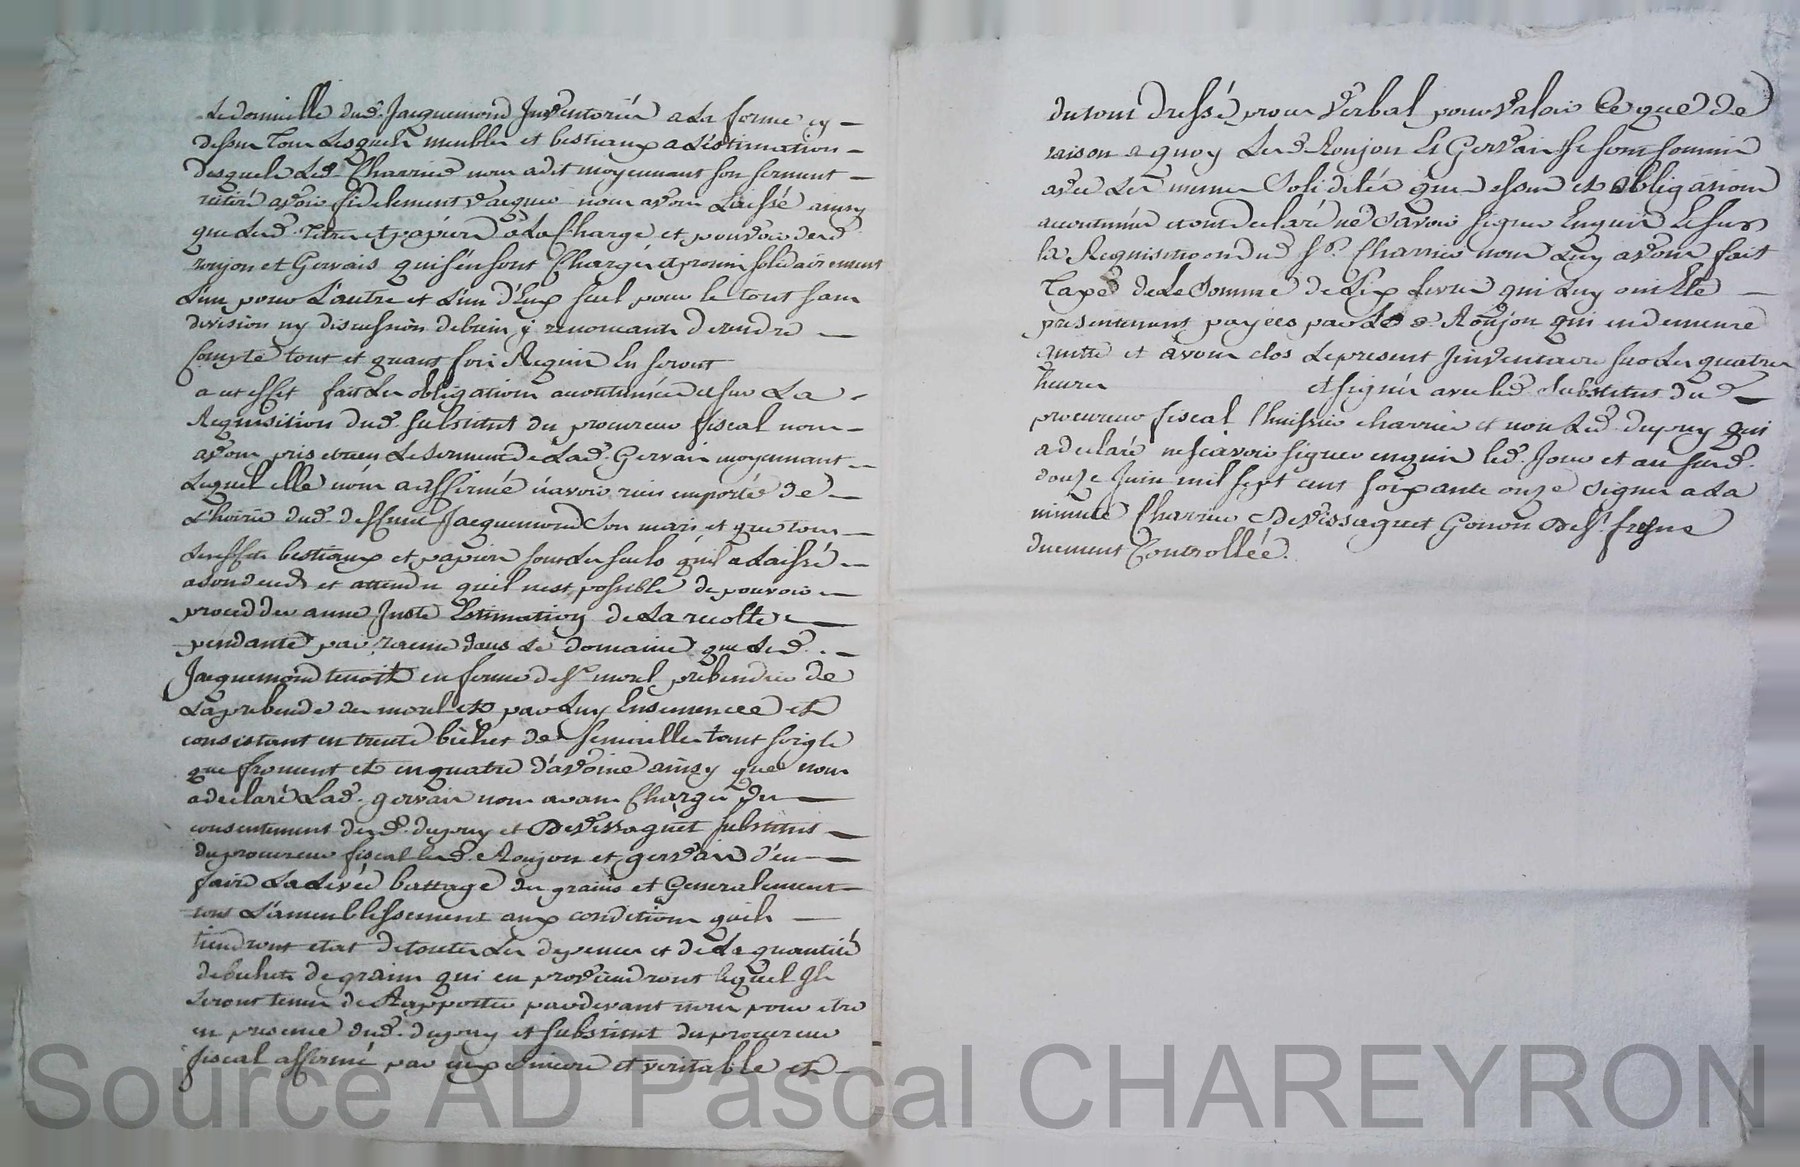 Le domicille dud. Jacquemond Inventoriée a la forme cy
dessus Tous lesquels meubles et bestiaux a l'estimation
desquels led. Charrier nous a dit moyennant son serment
reitéré avoir fidelement vacqué nous avons Laissé ainsy
que lesd. titres et papiers a La Charge et pouvoir desd.
roujon et Gervais qui s'en sont Chargés et promis solidairement
L'un pour L'autre et L'un d'Eux seul pour le tout sans
division ny discussion de bien y renonceants de rendre
Compte tout et quant fois Requis En seront
a cet effet fait les obligations accoutumées et sur La
Requisition dud. substitut du procureur fiscal nous
avons pris et recu Le serment de Lad. Gervais moyennant
Lequel elle nous a affirmé n'avoir rien emporté de
L'hoirie dud. deffunt Jacquemond son mari et que tous
Les effets bestiaux et papiers sont les seuls qu'il a Laissé
a son deceds et attendu quil n'est possible de pouvoir
procedder a une Juste Estimation de La recolte
pendante par racine dans Le domaine que Led.
Jacquemond tenoit en ferme de Sr. morel prebendier de
La prebende des morel et par Luy Ensemencée et
consistant en trente bichet de semaille tant soigle
que froment et en quatre d'avoine ainsy que nous
a declaré Lad. gervais nous avons Chargé du
consentement desd. dupuy et Devissaguet substitut
du procureur fiscal lesd. Roujon et gervais d'en
faire La Levée battage des grains et Generalement
tous L'ameublissement aux conditions qu'ils
tiendront etat de toutes Les depenses et de La quantité
de bichets de grains qui en proviendront lequel Ils
seront tenus de Rapporter pardevant nous pour etre
en presence dud. dupuy et substitut du procureur
fiscal affirmé par eux sincere et veritable et
du tout dressé procès Verbal pour Valoir Ce que de
raison a quoy Lesd. Roujon Et Gervais se sont soumis
avec Les memes Solidités que dessus et obligations
accoutumées et ont declaré ne Savoir signer Enquis Et sur
la Requisition du Sr. Charrier nous Luy avons fait
Taxe de Le Somme de Six Livres qui Luy ont Eté
presentement payées par Le d. Roujon qui en demeure
quitte et avons clos Le present Inventaire sur Les quatre
heures et signés avec led. Substitut du d.
procureur fiscal l'huissier charrier et non Led. dupuy qui
a declaré ne sçavoir signer enquis led. Jour et an susd.
douze Juin mil sept cent soixante onze signés a La
minute Charrier Devissaguet Gonon De St. fregne
duement Controllée.
Source AD Pascal CHAREYRON